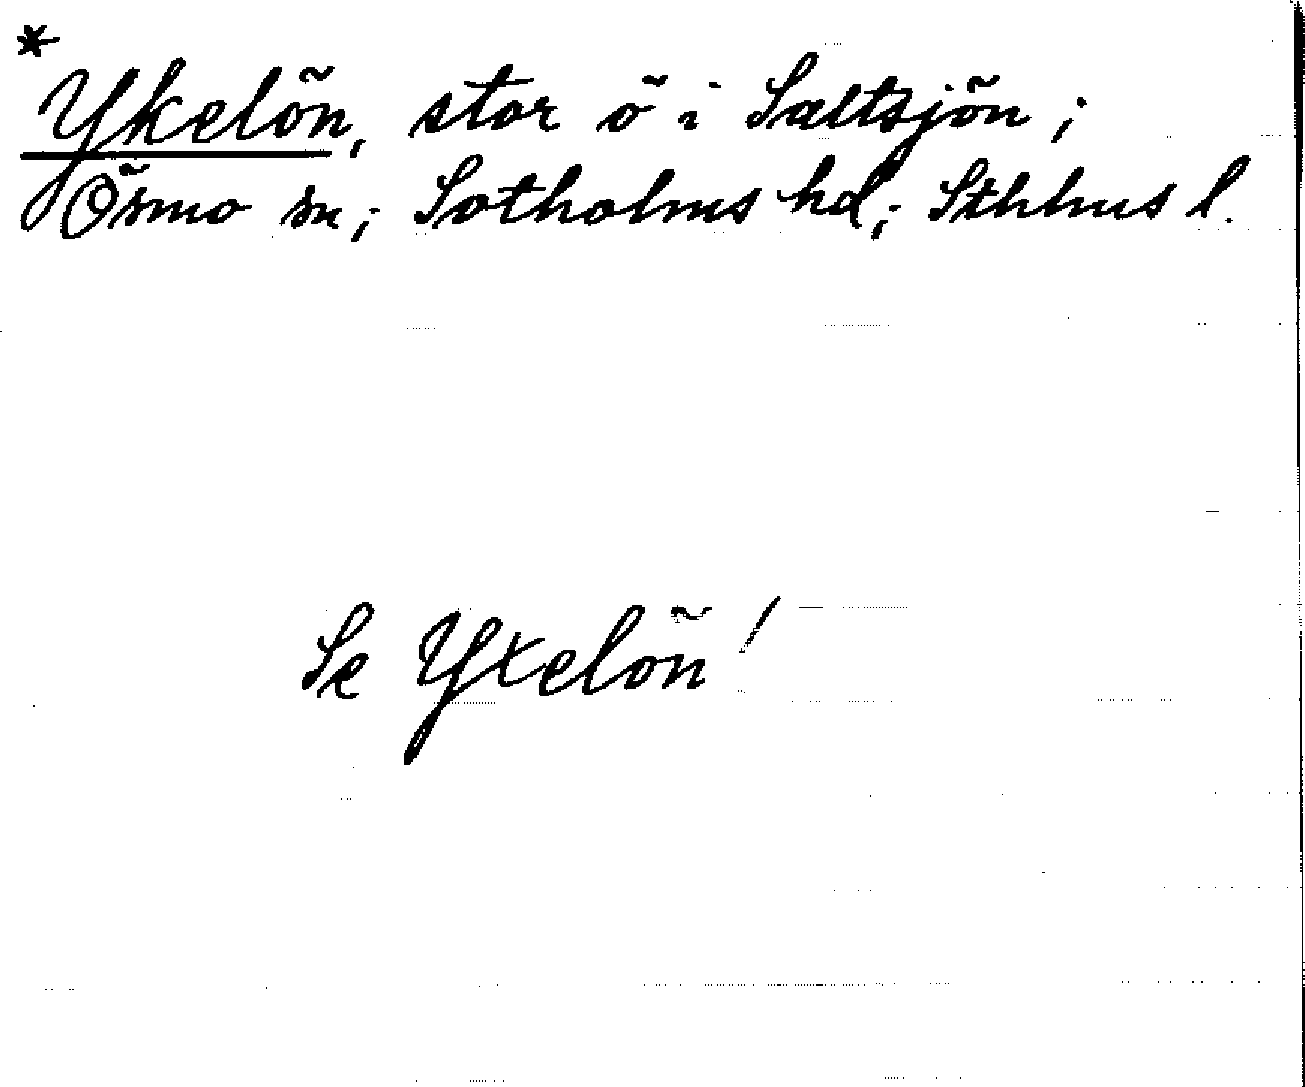 *
Ykelön, stor ö i Saltsjön;
Ösmo sn; Sotholms hd; Sthlms l.
Se Yxelön!